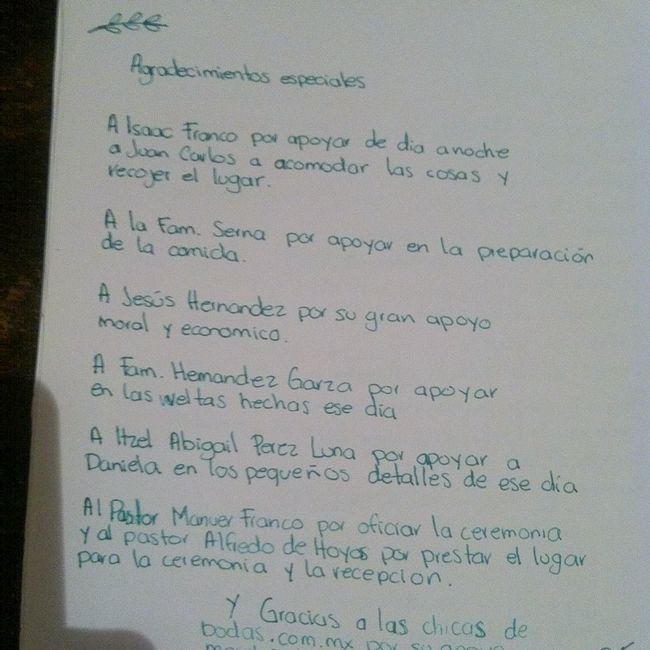 Agradecimientos especiales
A Isaac Franco por apoyar de dia a noche
a Juan Carlos a acomodar las cosas y
recojer el lugar.
A la Fam. Serna por apoyar en la preparación
de la comida.
A Jesús Hernandez por su gran apoyo
moral y economico.
A Fam. Hernandez Garza por apoyar
en las weltas hechas ese dia
A Itzel Abigail Perez Luna por apoyar a
Daniela en los pequeños detalles de ese dia
Al Pastor Manuel Franco por oficiar la ceremonia
y al pastor Alfredo de Hoyos por prestar el lugar
para la ceremonia y la recepcion.
Y Gracias a las chicas de
bodas.com.mx por su apoyo